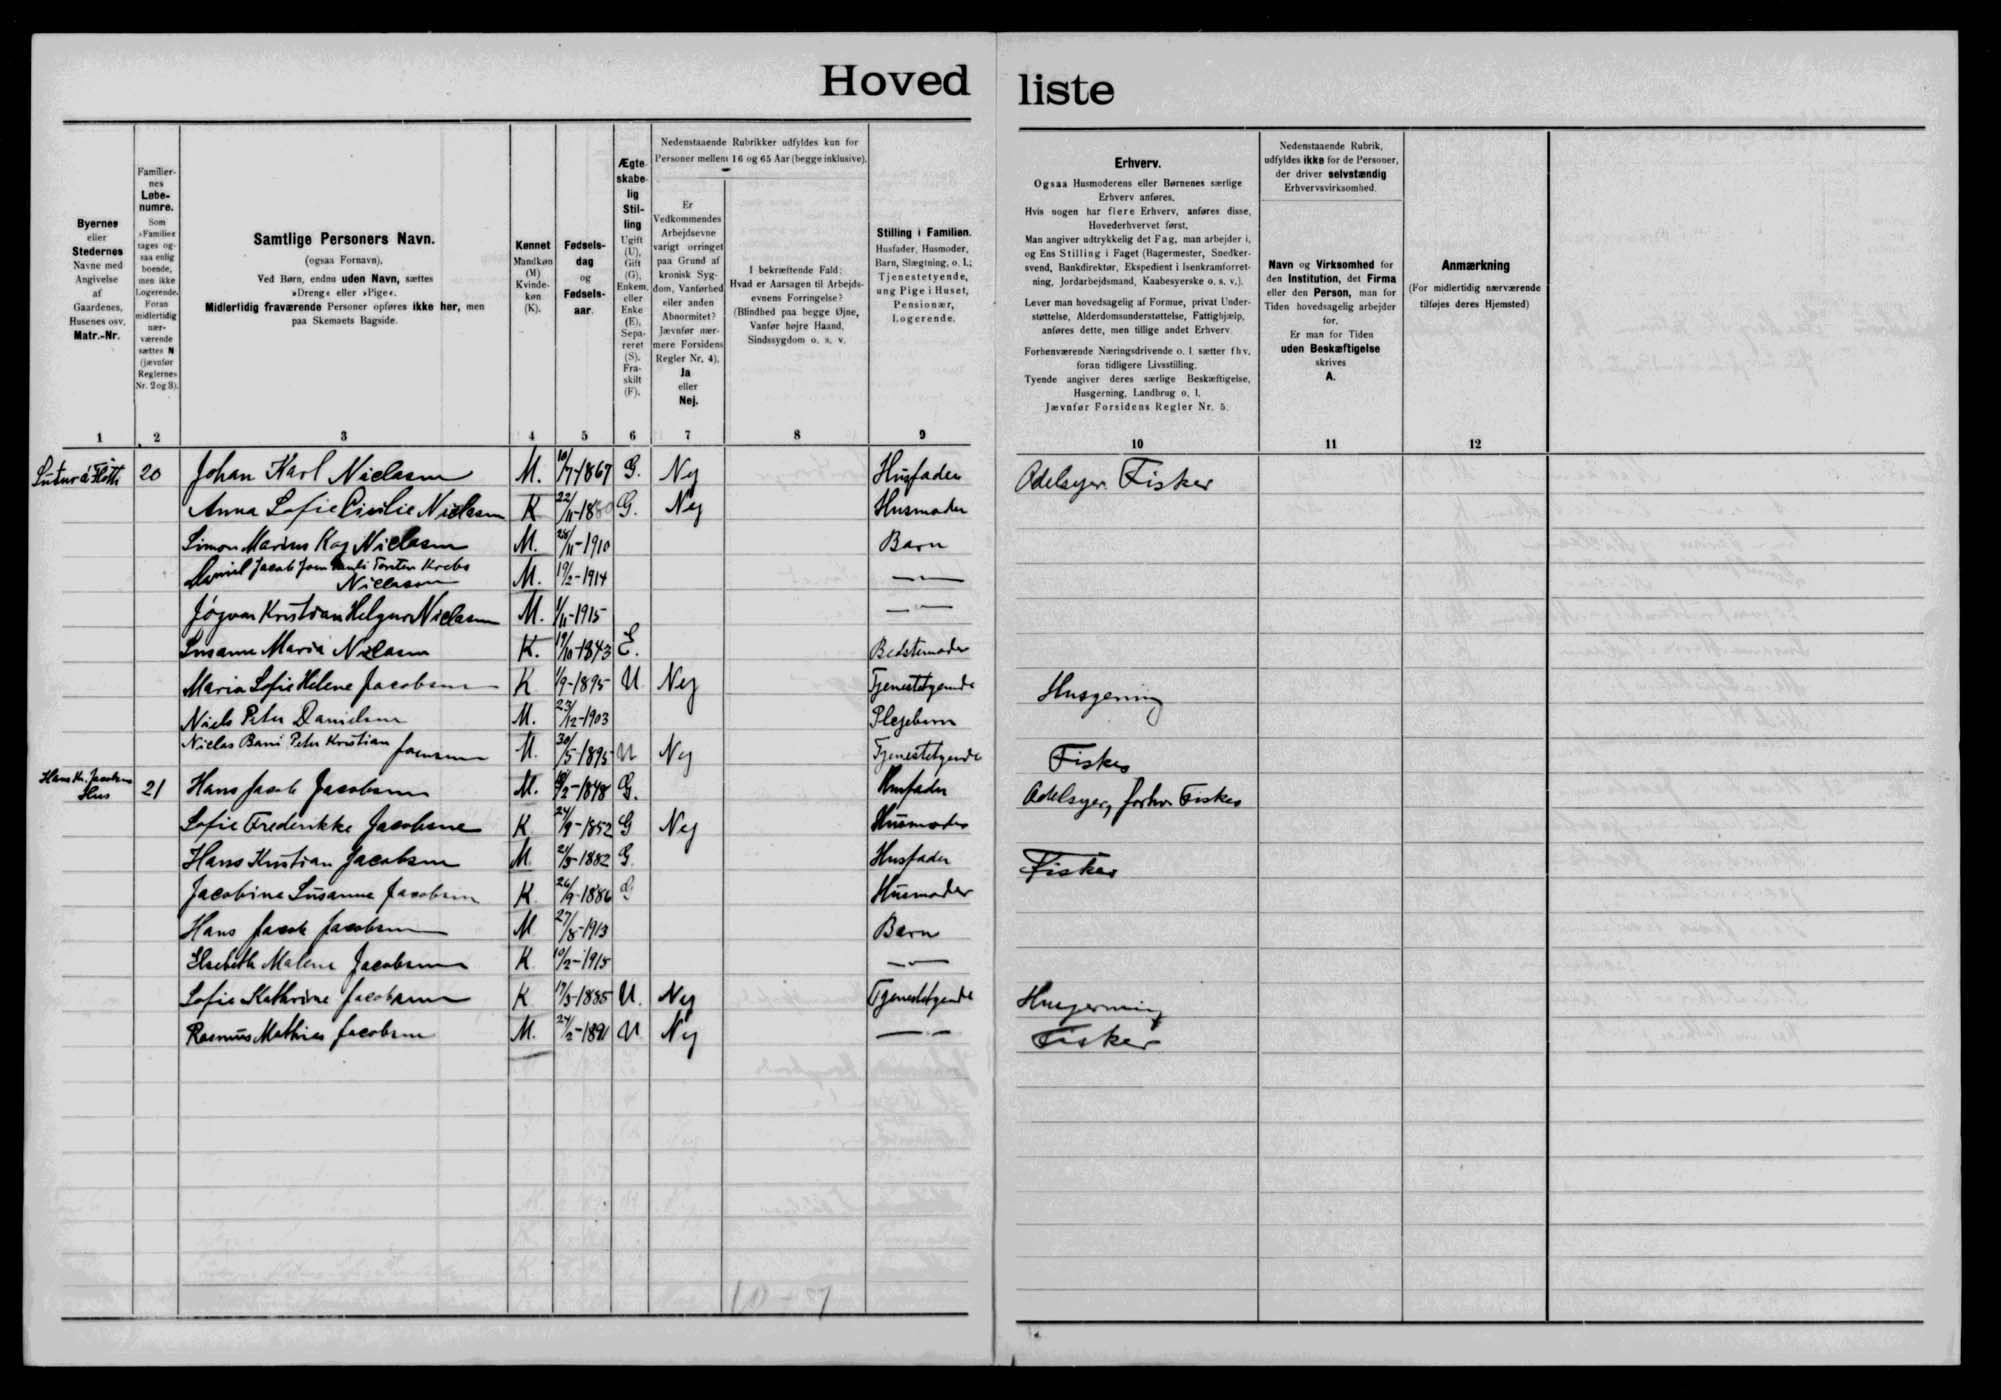 Hoved liste
Byernes
eller
Stedernes
Navne med
Angivelse
af
Gaardenes,
Husenes osv.
Matr.-Nr.
Familier-
nes
Løbe-
numre.
Som
»Familie«
tages og-
saa enlig
boende,
men ikke
Logerende.
Foran
midlertidig
nær-
værende
sættes N
(jævnfør
Reglernes
Nr. 2 og 3).
Samtlige Personers Navn.
(ogsaa Fornavn).
Ved Børn, endnu uden Navn, sættes
»Dreng« eller »Pige«.
Midlertidig fraværende Personer opføres ikke her, men
paa Skemaets Bagside.
Kønnet
Mandkøn
(M)
Kvinde-
køn
(K).
Fødsels-
dag
og
Fødsels-
aar.
Ægte-
skabe-
lig
Stil-
ling
Ugift
(U),
Gift
(G),
Enkem.
eller
Enke
(E),
Sepa-
reret
(S).
Fra-
skilt
(F).
Nedenstaaende Rubrikker udfyldes kun for
Personer mellem 16 og 65 Aar (begge inklusive).
Er
Vedkommendes
Arbejdsevne
varigt forringet
paa Grund af
kronisk Syg-
dom, Vanførhed
eller anden
Abnormitet?
Jævnfør nær-
mere Forsidens
Regler Nr. 4).
Ja
eller
Nej.
I bekræftende Fald:
Hvad er Aarsagen til Arbejds-
evnens Forringelse?
(Blindhed paa begge Øjne,
Vanfør højre Haand,
Sindssygdom o. s. v.
Stilling i Familien.
Husfader, Husmoder,
Barn, Slægtning, o. l.;
Tjenestetyende,
ung Pige i Huset,
Pensionær,
Logerende.
Erhverv.
Ogsaa Husmoderens eller Børnenes særlige
Erhverv anføres.
Hvis nogen har flere Erhverv, anføres disse,
Hovederhvervet først.
Man angiver udtrykkelig det Fag, man arbejder i,
og Ens Stilling i Faget (Bagermester, Snedker-
svend, Bankdirektør, Ekspedient i Isenkramforret-
ning, Jordarbejdsmand, Kaabesyerske o. s. v.).
Lever man hovedsagelig af Formue, privat Under-
støttelse, Alderdomsunderstøttelse, Fattighjælp,
anføres dette, men tillige andet Erhverv.
Forhenværende Næringsdrivende o. l. sætter fhv.
foran tidligere Livsstilling.
Tyende angiver deres særlige Beskæftigelse,
Husgerning, Landbrug o. l.
Jævnfør Forsidens Regler Nr. 5.
Nedenstaaende Rubrik,
udfyldes ikke for de Personer,
der driver selvstændig
Erhvervsvirksomhed.
Navn og Virksomhed for
den Institution, det Firma
eller den Person, man for
Tiden hovedsagelig arbejder
for.
Er man for Tiden
uden Beskæftigelse
skrives
A.
Anmærkning
(For midlertidig nærværende
tilføjes deres Hjemsted)
1 2 3 4 5 6 7 8 9 10 11 12
20 Johan Karl Niclasen M. 10/7-1867 G. Nej Husfader Odelsejer Fisker
Anna Sofie Cicilie Niclasen K 22/11-1880 G. Nej Husmoder
Simon Marius Kaj Niclasen M. 28/11-1910 Barn
Daniel Jacob Torsten Krebs
Niclasen M. 19/2-1914 — —
Jógvan Kristian Helgur Niclasen M. 1/11-1915 — —
Susanne Maria Niclasen K. 19/10-1843 E. Bedstemoder
Maria Sofie Helene Jacobsen K 1/9-1895 U Nej Tjenestetyende Husgerning
Niels Peter Danielsen M. 23/12-1903 Plejebarn
Niclas Peter Kristian Joensen M. 30/5-1895 U Nej Tjenestetyende Fisker
Hans Kr. Jacobsens
Hus 21 Hans Jacob Jacobsen M. 2-1848 G. Husfader Odelsejer, forhv. Fisker
Sofie Frederikke Jacobsen K 24/9-1852 G Nej Husmoder
Hans Kristian Jacobsen M. 21/5-1882 G. Husfader Fisker
Jacobine Susanna Jacobsen K 26/9-1886 G Husmoder
Hans Jacob Jacobsen M 27/8-1913 Barn
Elsebeth Malene Jacobsen K 10/2-1915 — —
Sofie Kathrine Jacobsen K 17/5-1885 U. Nej Tjenestetyende Husgerning
Rasmus Mathias Jacobsen M. 24/2-1891 U Nej — — Fisker